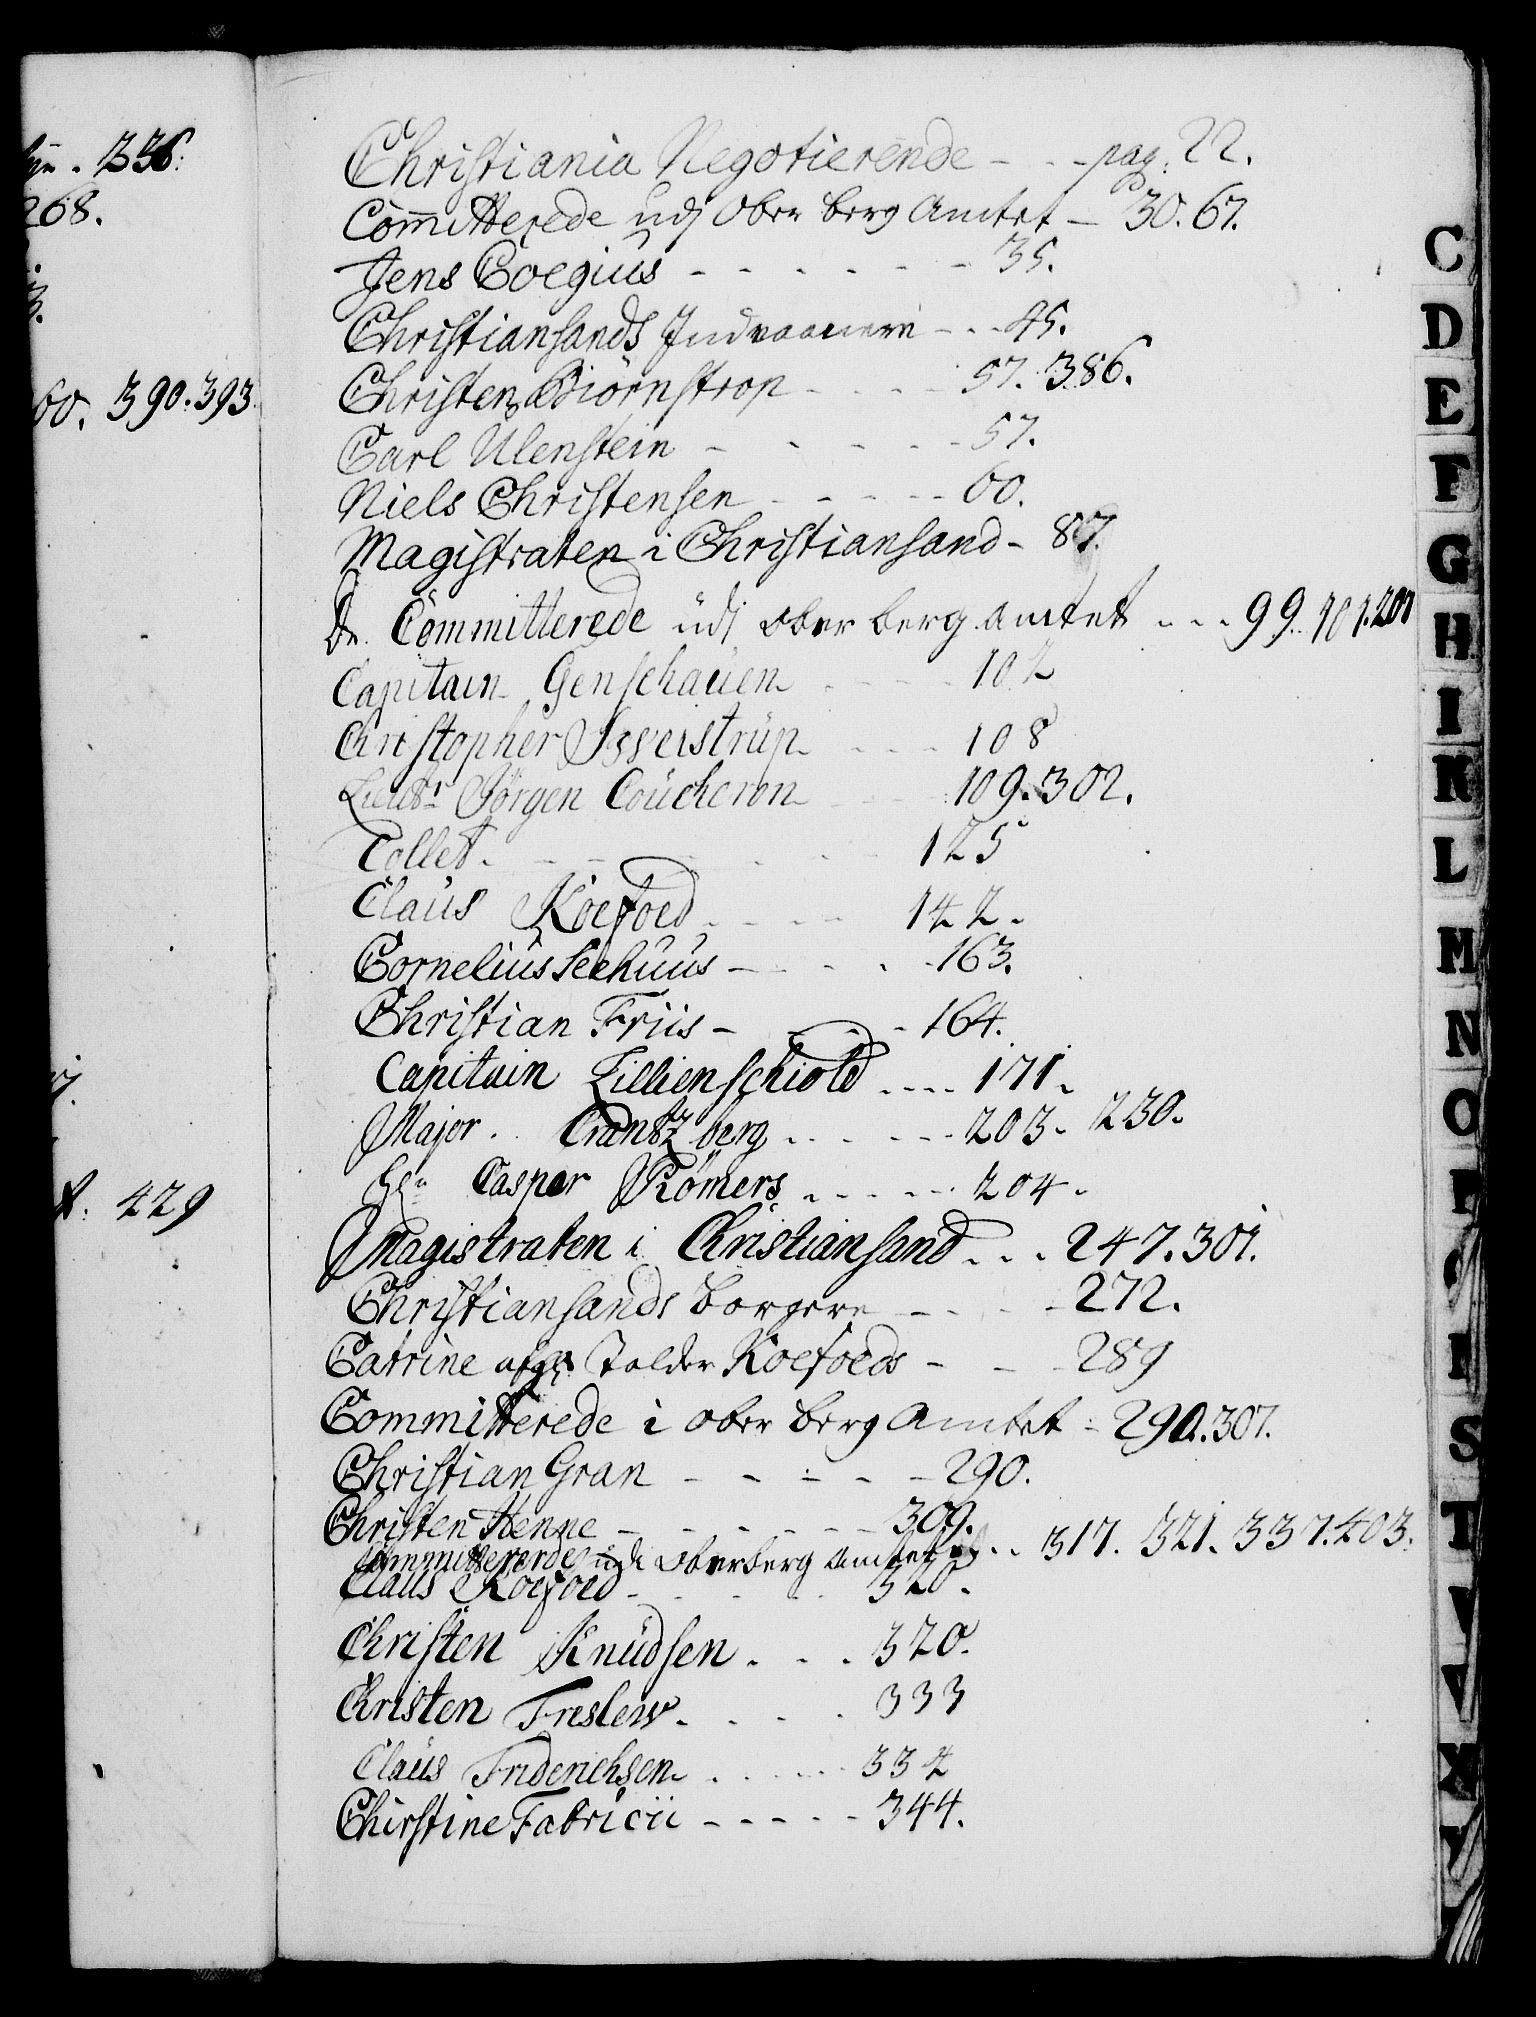 Christiania Negotierende - - - pag. 22.
Com̄itterede udj Ober berg Amtet - 30. 67.
Jens Coegius - - - - - - 35.
Christiansands Indvaanere - - - 45.
Christen Biörnstrop - - - - 57. 386.
Carl Ulenstein - - - - - 57.
Niels Christensen - - - - - 60.
Magistraten i Christiansand - 87.
De Committerede udj ober berg Amtet . . . 99. 101. 201
Capitain Genschauen - - - - 102
Christopher - - - - 108
Lieut: Jörgen Coucheron - - - 109. 302.
Collet. - - - - - - 125
Claus Koefoed - - - - 142.
Cornelius Seehuus - - - - 163.
Christian Friis - - - - 164.
Capitain Lillienschiold .... 171.
Major. Crantzberg . . . . - - 203. 230.
Hr Casper Römers . . . . . 204.
Magistraten i Christiansand . . . 247. 301.
Christiansands borgere - - - - 272.
Catrine afg: Tolder Koefoeds - - - 289
Committerede i ober berg Amtet - 290. 307.
Christian Gran - - - - - 290.
Christen Henne - - - - - - 309.
Committerede udi Oberberg Amtet . . 317. 321. 337. 403.
Claus Koefoed - - - - 320.
Christen Knudsen . . . 320.
Christen Freslew. . . . 333
Claus Friderichsen . . . . . 334
Chirstine Fabricii - - - - - 344.
336:
268.
60. 390. 393.
429
C
D
E
F
G
H
I
K
L
M
N
O
P
Q
R
S
T
V
V
X
Y